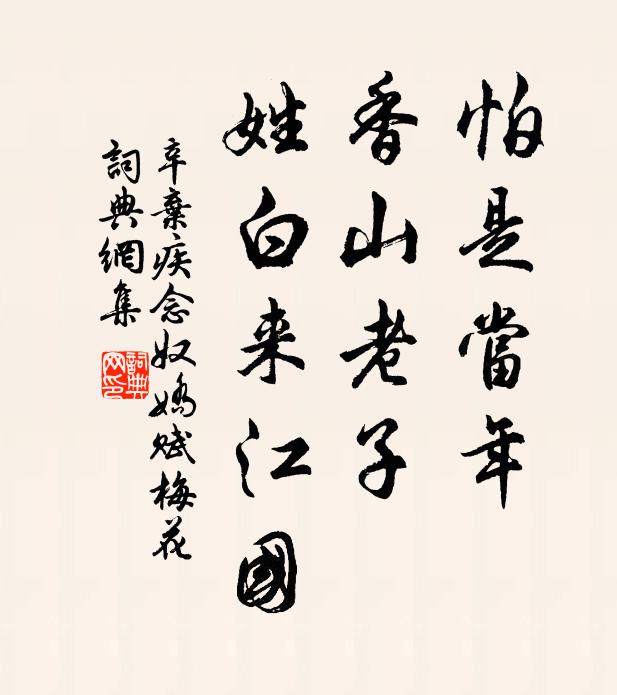 怕是當年
香山老子
姓白来江國
辛棄疾念奴嬌賦梅花
詞典網集
詞典
网印